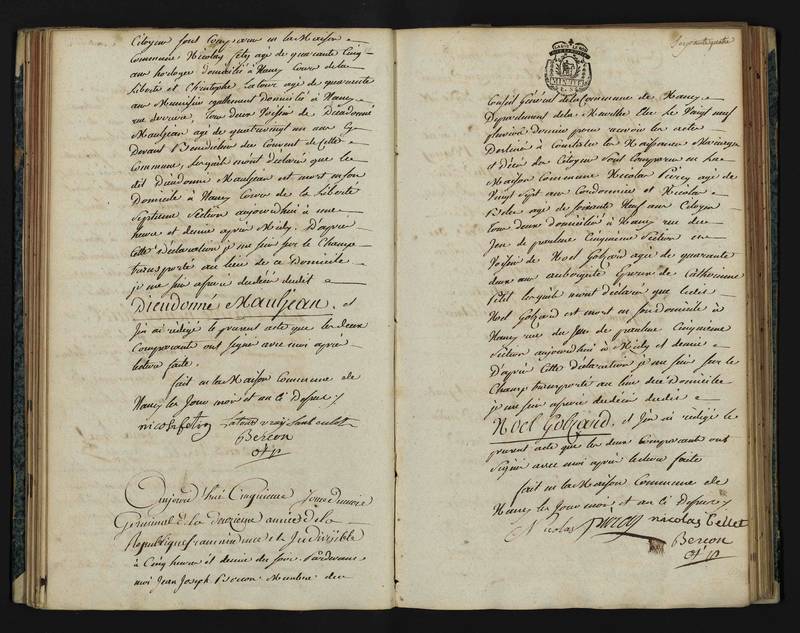 Citoyen sont comparu en la Maison
Commune Nicolas agé de quarante Cinq
ans horloger domicilié à Nancy Cours de la
Liberté et Christophe Latour agé de quarante
ans Musicien egallement domicilié à Nancy
tous deux Voisin de Dieudonné
Mauljean agé de quatrevingt un ans
Devant Benedictin du Couvent de Cette
Commune, lesquels m'ont déclaré que le
dit Dieudonné Mauljean est mort en son
Domicile à Nancy Cours de la Liberté
Septieme Section aujourdhui à une
heure et demie apres Midy. D'apres
Cette Déclaration je me suis sur le Champ
transporté au lieu de ce Domicile
je me suis assuré du décès dudit
Dieudonné Mauljean, et
J'en ai redigé le present acte que les deux
Comparants ont signé avec moi apres
lecture faite.
fait en la Maison Commune de
Nancy les Jour mois et an ci Dessus
nicolas
Bercon
Off p
Aujourdhui Cinquieme Jour du mois
Germinal de la deuxieme année de la
Republique francaise une et Indivisible
à Cinq heures et demie du soir. Pardevant
moi Jean Joseph Bercon Membre du
Conseil Général de la Commune de Nancy
Departement de la Meurthe Elu le Vingt neuf
pluviose dernier pour recevoir les actes
Destinés à Constater les Naissances Mariages
et décès des Citoyens sont Comparu en la
Maison Commune Nicolas agé de
Vingt Sept ans Cordonnier et Nicolas
agé de soixante Neuf ans Citoyen
tous deux domiciliés à Nancy rue du
Jeu de paulme Cinquieme Section
Voisin de Noel Golzard agé de quarante
deux ans aubergiste Epoux de Catherinne
Petit lesquels m'ont déclaré que ledit
Noel Golzard est mort en son domicile à
Nancy rue du Jeu de paulme Cinquieme
Section aujourdhui à Midy et demie
D'après Cette déclaration je me suis sur le
Champ transporté au lieu du Domicile
je me suis assuré du décès dudit
Noel Golzard, et J'en ai redigé le
present acte que les deux Comparants ont
Signé avec moi après lecture faite
fait en la Maison Commune de
Nancy les Jour mois et an ci Dessus
Nicolas nicolas
Bercon
Off p